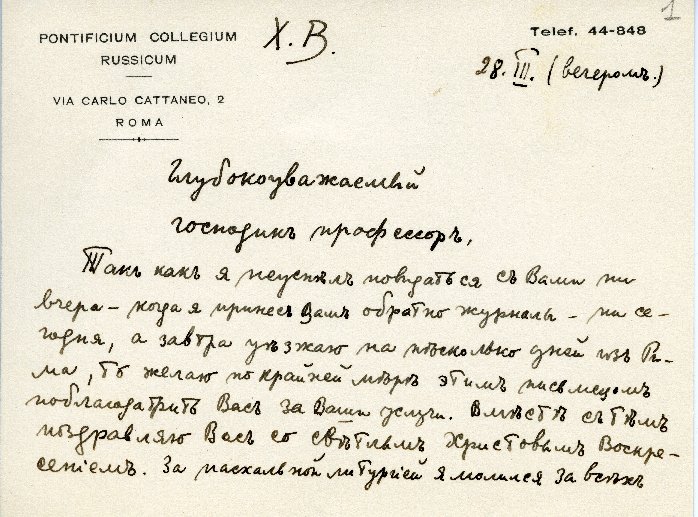 1
PONTIFICIUM COLLEGIUM
RUSSICUM
VIA CARLO CATTANEO, 2
ROMA
Х.В.
Telef. 44-848
28. III. (вечеромъ.)
Глубокоуважаемый
господинъ профессоръ,
Такъ какъ я неуспѣлъ повидаться съ Вами ни
вчера – когда я принесъ Вамъ обратно журналы – ни се-
годня, а завтра уѣзжаю на нѣсколько дней изъ Ри-
ма, то желаю по крайней мѣрѣ этимъ письмецомъ
поблагодарить Васъ за Ваши услуги. Вмѣстѣ съ тѣмъ
поздравляю Васъ со свѣтлымъ Христовымъ Воскре-
сеніемъ. За пасхальной литургіей я молился за всѣхъ